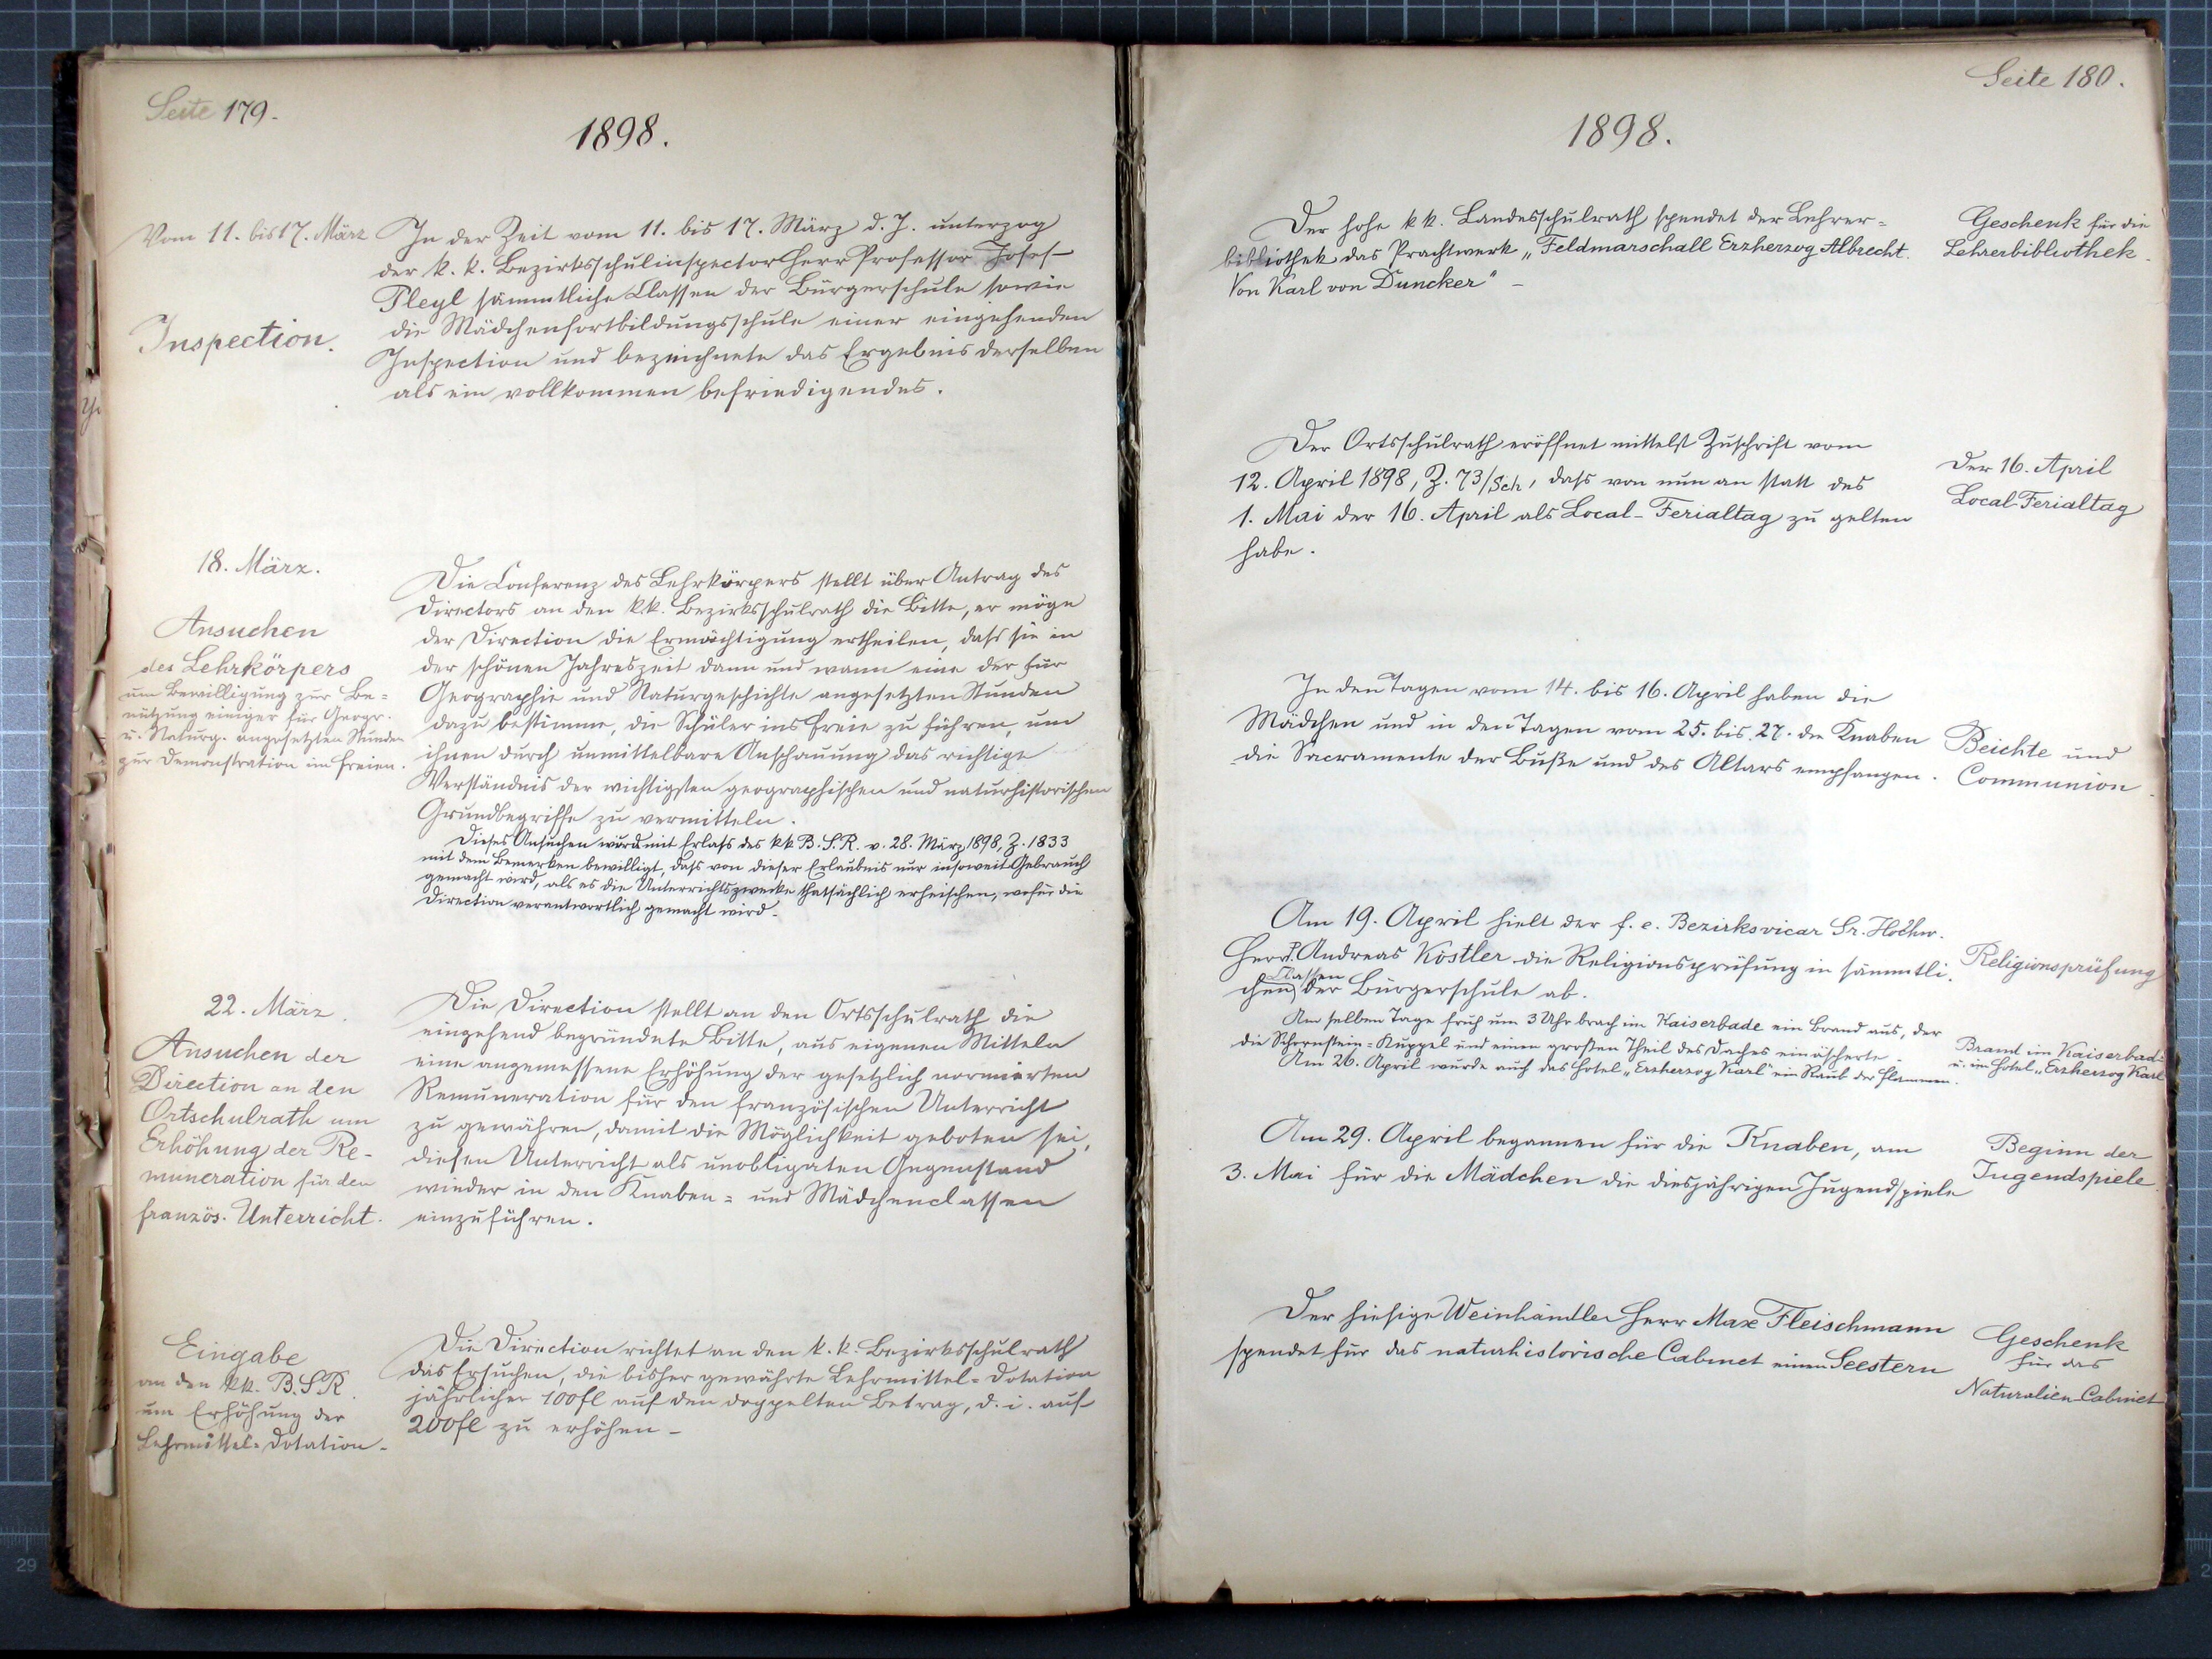 Seite 179.
1898.
Vom 11. bis 17. März
Inspection.
In der Zeit vom 11. bis 17. März d. J. unterzog
der k. k. Bezirksschulinspector Herr Professor Josef
Pleyl sämmtliche Classen der Bürgerschule sowie
die Mädchenfortbildungsschule einer eingehenden
Inspection und bezeichnete das Ergebnis derselben
als ein vollkommen befriedigendes.
18. März.
Ansuchen
des Lehrkörpers
um Bewilligung zur Be-
nützung einiger für Geogr.
u. Naturg. angesetzten Stunden
zur Demonstration im Freien.
Die Conferenz des Lehrkörpers stellt über Antrag des
Directors an den k.k. Bezirksschulrath die Bitte, er möge
der Direction die Ermächtigung ertheilen, dass sie in
der schönen Jahreszeit dann und wann eine der für
Geographie und Naturgeschichte angesetzten Stunden
dazu bestimme, die Schüler ins Freie zu führen, um
ihnen durch unmittelbare Anschauung das richtige
Verständnis der wichtigsten geographischen und naturhistorischen
Grundbegriffe zu vermitteln.
Dieses Ansuchen wurde mit Erlass des kk B.S.R. v. 28. März 1898, Z. 1833
mit dem Bemerken bewilligt, dass von dieser Erlaubnis nur insoweit Gebrauch
gemacht wird, als es die Unterrichtszwecke thatsächlich erheischen, wofür die
Direction verantwortlich gemacht wird.
22. März.
Ansuchen der
Direction an den
Ortschulrath um
Erhöhung der Re-
muneration für den
französ. Unterricht.
Die Direction stellt an den Ortsschulrath die
eingehend begründete Bitte, aus eigenen Mitteln
eine angemessene Erhöhung der gesetzlich normierten
Remuneration für den französischen Unterricht
zu gewähren, damit die Möglichkeit geboten sei,
diesen Unterricht als unobligaten Gegenstand
wieder in den Knaben- und Mädchenclassen
einzuführen.
Eingabe
an den kk. B.S.R.
um Erhöhung der
Lehrmittel-Dotation.
Die Direction richtet an den k. k. Bezirksschulrath
das Ersuchen, die bisher gewährte Lehrmittel-Dotation
jährlicher 100fl auf den doppelten Betrag, d. i. auf
200fl zu erhöhen -
Seite 180.
1898.
Der hohe k.k. Landesschulrath spendet der Lehrer-
bibliothek das Prachtwerk „Feldmarschall Erzherzog Albrecht.
Von Karl von Duncker" -
Geschenk für die
Lehrerbibliothek.
Der Ortsschulrath eröffnet mittelst Zuschrift vom
12. April 1898, Z. 73/Sch, dass von nun an statt des
1. Mai der 16. April als Local-Ferialtag zu gelten
habe.
Der 16. April
Local-Ferialtag
In den Tagen vom 14. bis 16. April haben die
Mädchen und in den Tagen vom 25. bis 27. die Knaben
die Sacramente der Buße und des Altars empfangen.
Beichte und
Communion.
Am 19. April hielt der f. e. Bezirksvicar Sr. Hochw.
Herr P. Andreas Köstler die Religionsprüfung in sämmtli-
chen Classen der Bürgerschule ab.
Religionsprüfung
Am selben Tage früh um 3 Uhr brach im Kaiserbade ein Brand aus, der
die Schornstein-Kuppel und einen großen Theil des Daches einäscherte.
Am 26. April wurde auch das Hotel „Erzherzog Karl" ein Raub der Flammen.
Brand im Kaiserbade
u. im Hotel „Erzherzog Karl
Am 29. April begannen für die Knaben, am
3. Mai für die Mädchen die diesjährigen Jugendspiele
Beginn der
Jugendspiele.
Der hiesige Weinhändler Herr Max Fleischmann
spendet für das naturhistorische Cabinet einen Seestern
Geschenk
für das
Naturalien-Cabinet
29